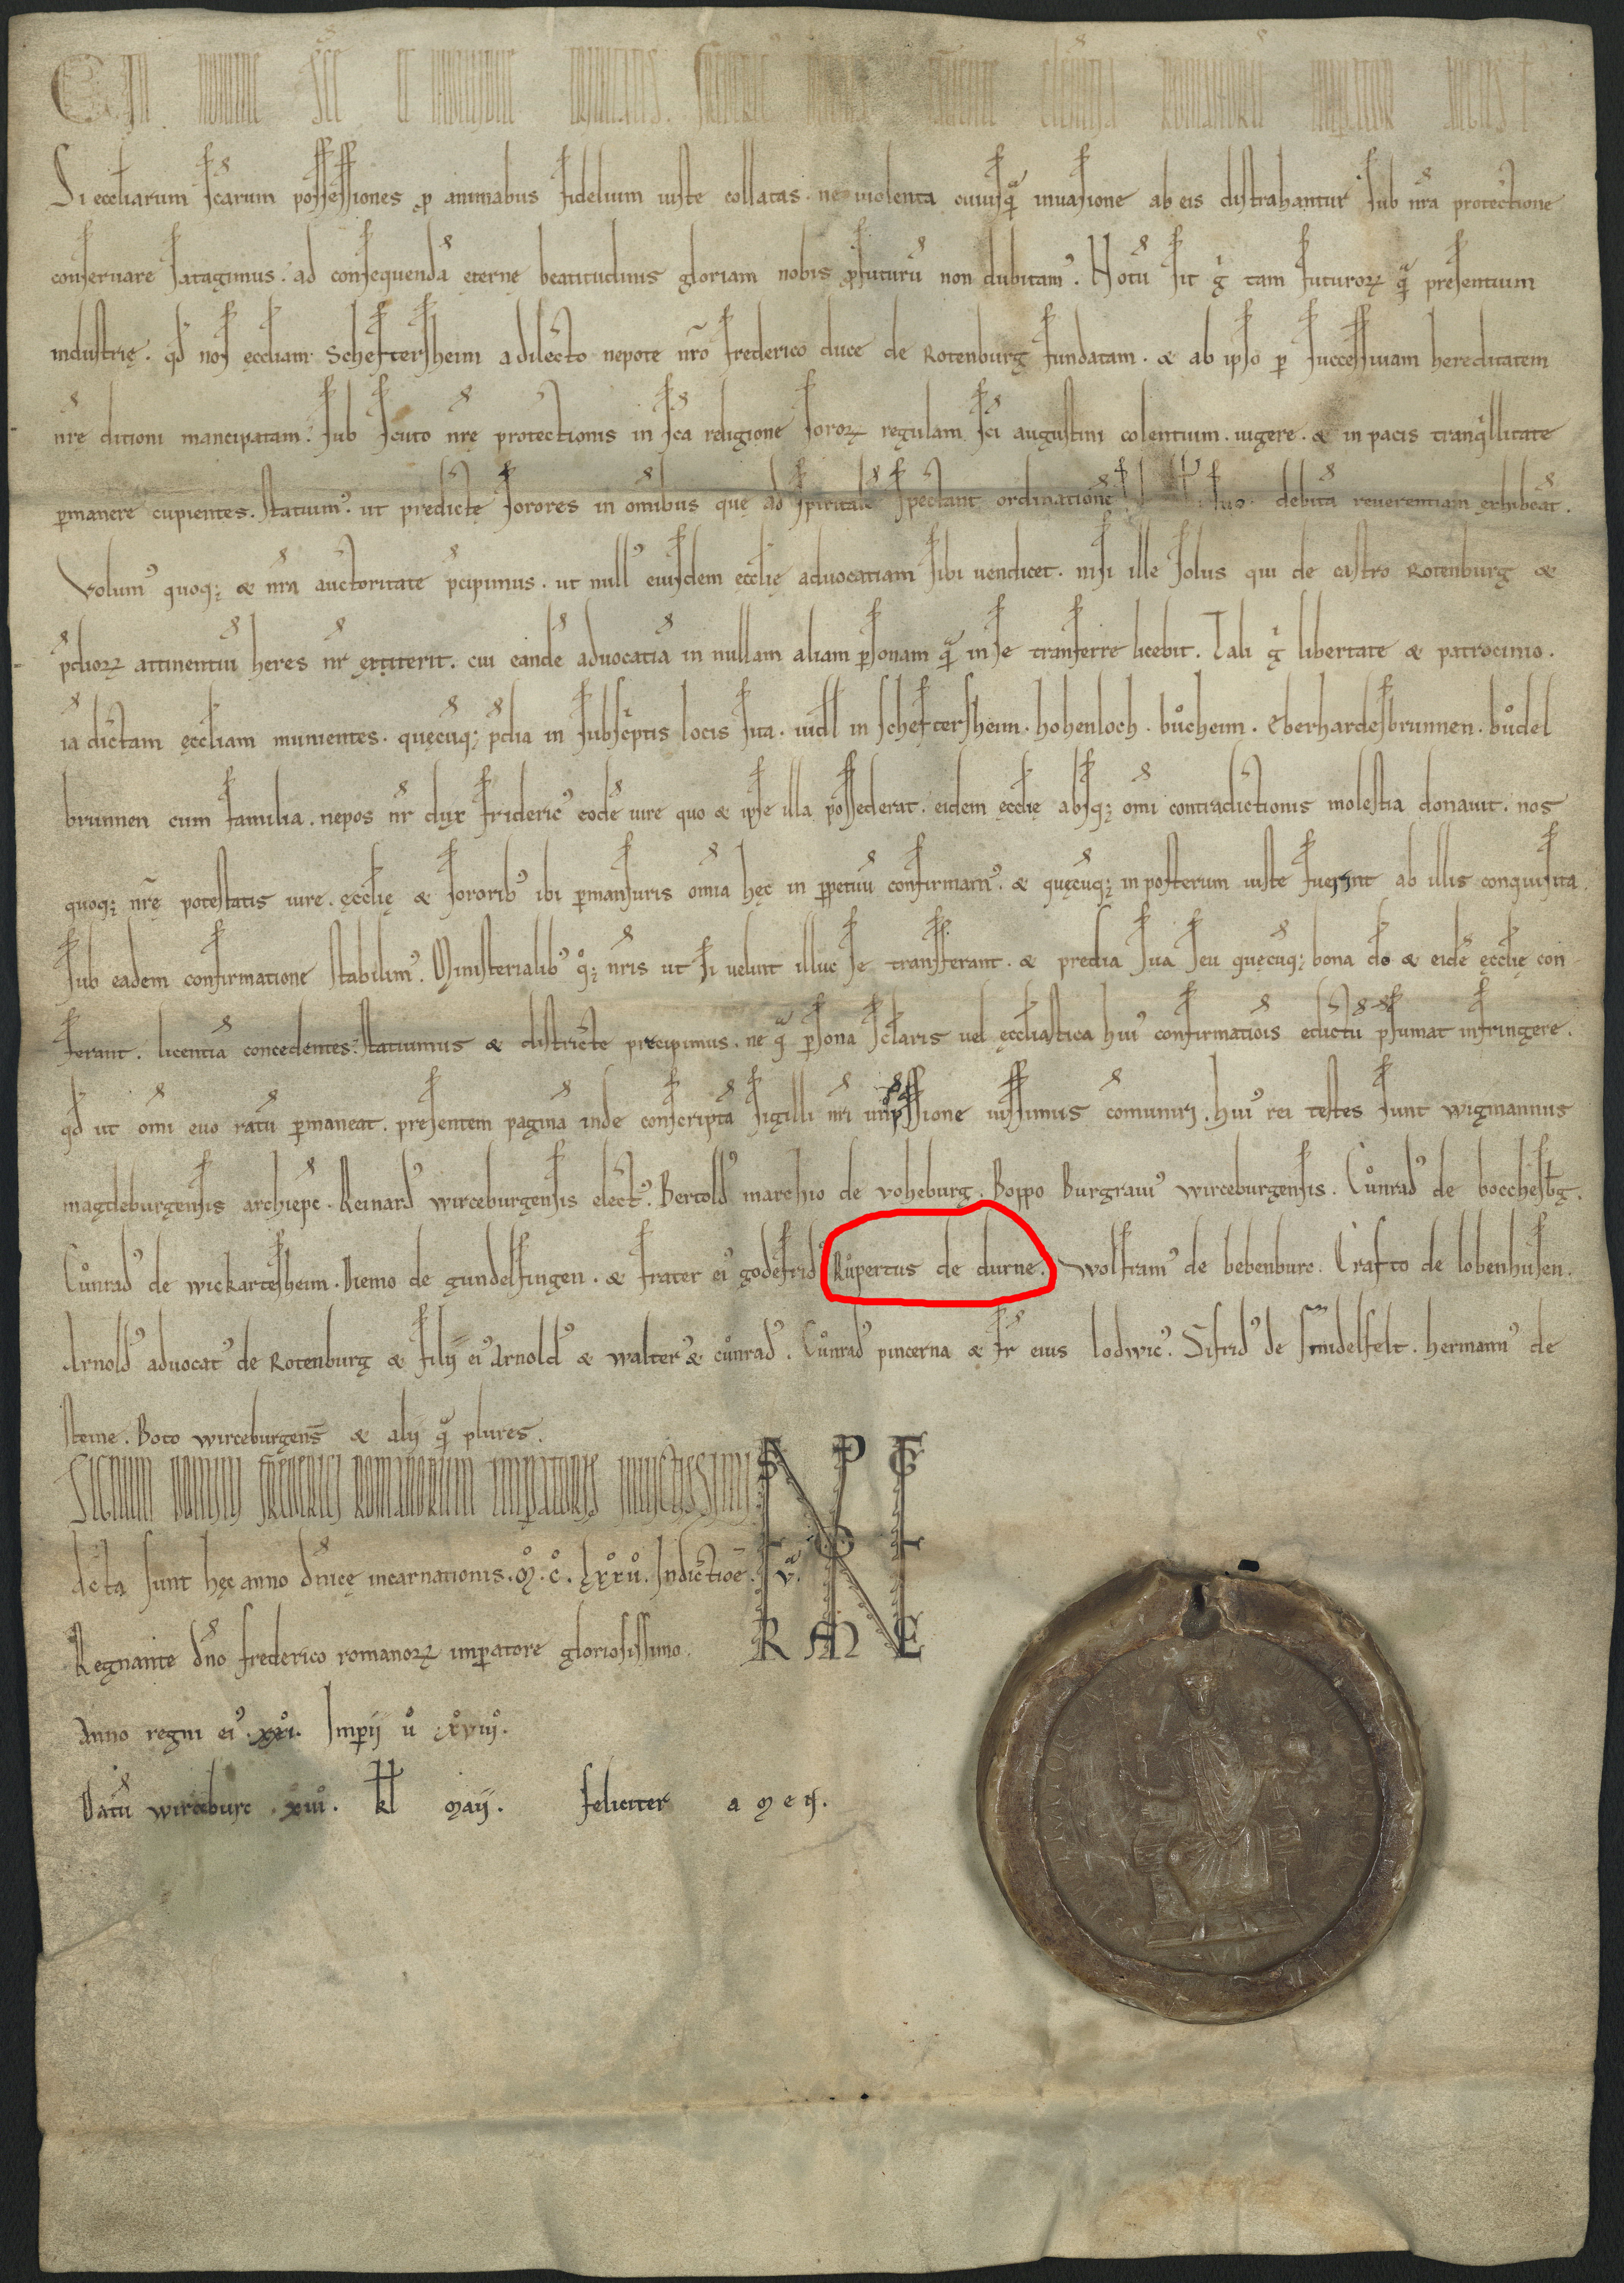 C In nomine sce et indiuidue trinitatis. Frideric diuina fauente clementia romanorū imperator augustus
Si eccliarum scarum possessiones p animabus fidelium iuste collatas. ne uiolenta cuiusq̄ inuasione ab eis distrahantur sub nr̄a protectione
conseruare satagimus. ad consequendā eterne beatitudinis gloriam nobis pfuturū non dubitam᾽. Notū sit g̊ tam futuroꝝ q̄ presentium
industrię. qd nos ęccliam Scheftersheim a dilecto nepote nr̄o frederico duce de Rotenburg fundatam. & ab ipso p successiuam hereditatem
nr̄e ditioni mancipatam. sub scuto nr̄e protectionis in sc̄a religione soroꝝ regulam sc̄i augustini colentium. uigere. & in pacis tranq̇llitate
pmanere cupientes. Statuim᾽. ut predictę sorores in omībus quę ad spiritalē spectant ordinationē suo debitā reuerentiam exhibeāt.
Volum᾽ quoq; & nr̄a auctoritate p̄cipimus. ut null᾽ eiusdem ęcclię aduocatiam sibi uendicet. nisi ille solus qui de castro Rotenburg &
p̄dioꝝ attinentiū heres nr̄ extiterit. cui eandē aduocatiā in nullam aliam psonam q̄ in se transferre licebit. Tali g̊ libertate & patrocinio.
iā dictam ęccliam munientes. quęcūq; p̄dia in subsc̄ptis locis sita. uidl in scheftersheim. hohenloch. bůcheim. Eberhardesbrunnen. bůdel
brunnen cum familia. nepos nr̄ dux frideric᾽ eodē iure quo & ipse illa possederat. eidem ęcclię absq; omī contradictionis molestia donauit. nos
quoq; nr̄ę potestatis iure. ęcclię & sororib᾽ ibi pmansuris omīa hęc in ppetuū confirmam᾽. & quęcūq; in posterum iuste fuerint ab illis conquisita
sub eadem confirmatione stabilim᾽. Ministerialib᾽ q̊; nr̄is ut si uelint illuc se transferant. & predia sua seu quęcūq; bona do & eidē ęcclię con
ferant. licentiā concedentes. Statuimus & districte precipimus. ne q̊ psona sclaris uel ęccliastica hui᾽ confirmatiōis edictū p̄sumat infringere.
qd ut omī euo ratū pmaneat. presentem paginā inde conscriptā sigilli nr̄i imp̄ssione iussimus comūniri. hui᾽ rei testes sunt wigmannus
magdeburgensis archiepc. Reinard᾽ wirceburgensis elect᾽. Bertold᾽ marchio de voheburg. Boppo Burgrau᾽ wirceburgensis. Cůnrad᾽ de boccheśbg.
Cůnrad᾽ de wickartesheim. Diemo de gundelfingen. & frater ei᾽ godefrid᾽ Růpertus de durne. Wolfram᾽ de bebenburc. Crafto de lobenhusen.
Arnold᾽ aduocat᾽ de Rotenburg & filij ei᾽ Arnold᾽ & walter᾽ & cůnrad᾽. Cůnrad᾽ pincerna & fr̄ eius lodwic᾽. Sifrid᾽ de sindelfelt. hermann᾽ de
steine. Boto wirceburgens̄ & alij q̄ plures.
Signum domini frederici romanorum imperatoris inuictissimi
dcta sunt hęc anno dnicę incarnationis. M. C. lxxii. Indictiōe. v.
Regnante dn̄o frederico romanoꝝ impatore gloriosissimo.
Anno regni ei᾽. xxi. Imperij u̇ xviii.
Datū wirceburc. xiii. kl maij. feliciter amen.